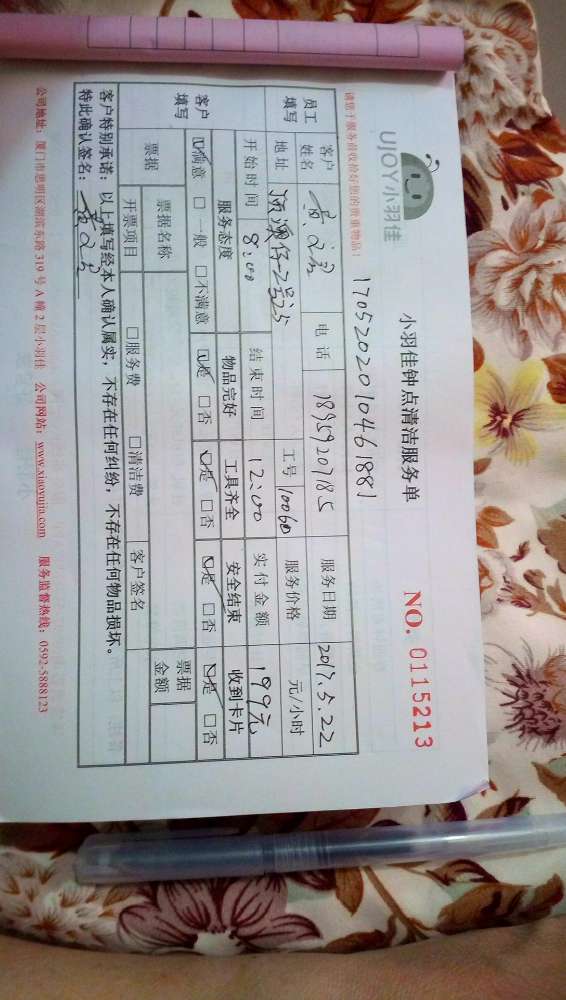 UJOY小羽佳
小羽佳钟点清洁服务单
NO. 0115213
请您于服务前收捡好您的贵重物品!
1705202010461881
员工填写 客户姓名 电话 18959207185 服务日期 2017.5.22
地址 工号 10060 服务价格 元/小时
开始时间 8:00 结束时间 12:00 实付金额 199元
客户填写 服务态度 物品完好 工具齐全 安全结束 收到卡片
☑满意 □一般 □不满意 ☑是 □否 ☑是 □否 ☑是 □否 ☑是 □否
票据 票据名称 票据金额
开票项目 □服务费 □清洁费 客户签名
客户特别承诺:以上填写经本人确认属实,不存在任何纠纷,不存在任何物品损坏。
特此确认签名:
公司地址:厦门市思明区湖滨东路319号A幢2层小羽佳 公司网站:www.xiaoyujia.com 服务监督热线:0592-5888123